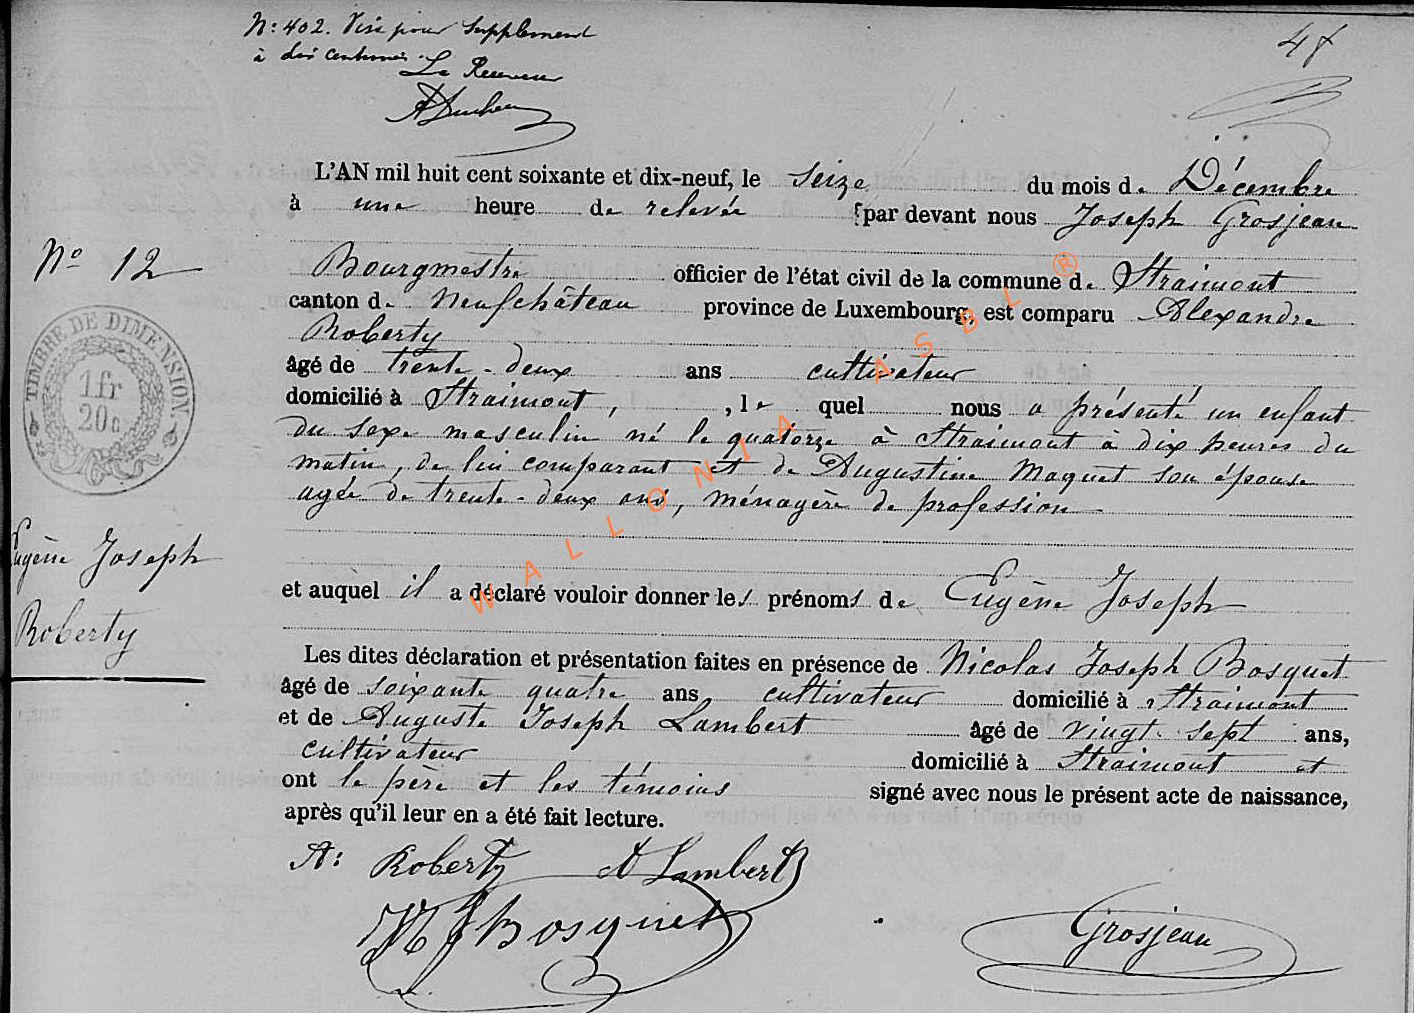 N: 402. Visé pour supplément
à dix centimes.
Le Receveur
L'AN mil huit cent soixante et dix-neuf, le seize du mois de Décembre
à une heure de relevée par devant nous Joseph Grosjean
Nº 12
Bourgmestre officier de l'état civil de la commune de Straimont
canton de Neufchâteau province de Luxembourg, est comparu Alexandre
Roberty
âgé de trente-deux ans cultivateur
domicilié à Straimont, , le quel nous a présenté un enfant
du sexe masculin né le quatorze à Straimont à dix heures du
matin, de lui comparant et de Augustine Maquet son épouse
agée de trente-deux ans, ménagère de profession
TIMBRE DE DIMENSION
1 fr
20 c
Eugène Joseph
Roberty
et auquel il a déclaré vouloir donner les prénoms de Eugène Joseph
Les dites déclaration et présentation faites en présence de Nicolas Joseph Bosquet
âgé de soixante quatre ans cultivateur domicilié à Straimont
et de Auguste Joseph Lambert âgé de vingt-sept ans,
cultivateur domicilié à Straimont et
ont le père et les témoins signé avec nous le présent acte de naissance,
après qu'il leur en a été fait lecture.
A: Roberty A Lambert
NJ Bosquet
Grosjean
WALLONIA ASBL ®